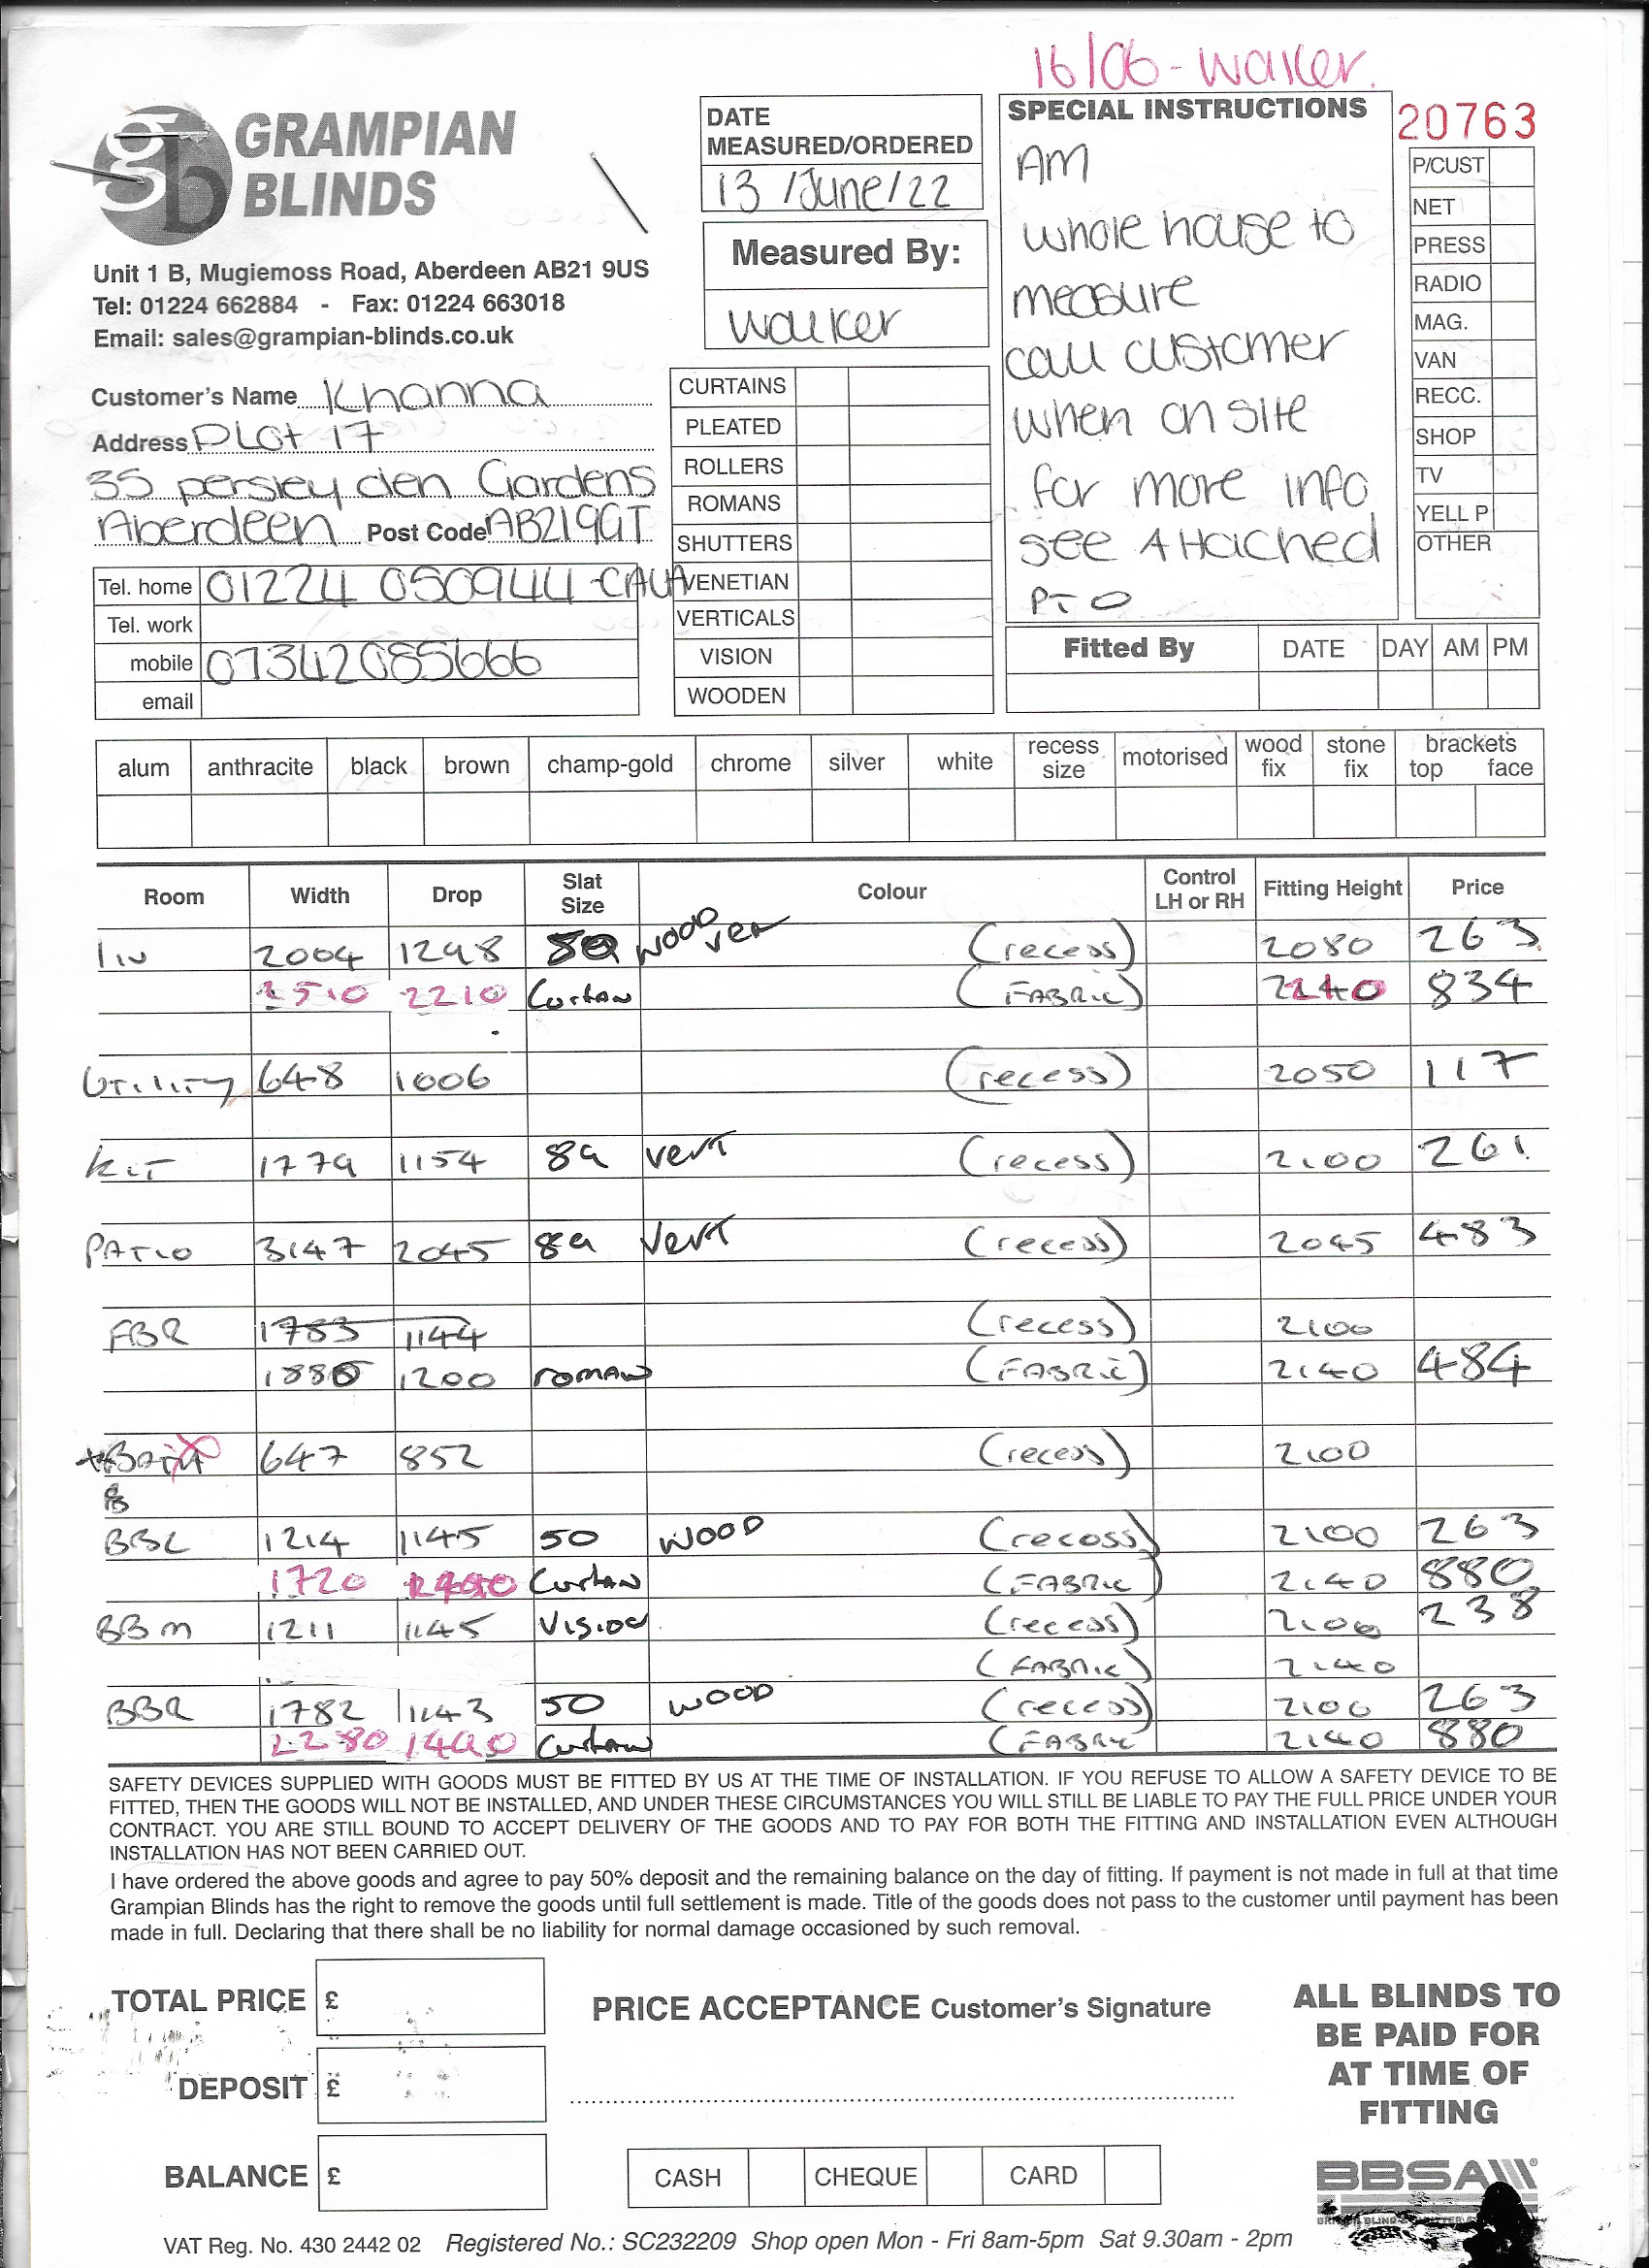 16/06 - Walker.
GRAMPIAN
BLINDS
Unit 1 B, Mugiemoss Road, Aberdeen AB21 9US
Tel: 01224 662884 - Fax: 01224 663018
Email: sales@grampian-blinds.co.uk
DATE
MEASURED/ORDERED
13/June/22
Measured By:
Walker
SPECIAL INSTRUCTIONS
AM
whole house to
measure
call customer
when on site
for more info
see Attached
PTO
20763
P/CUST
NET
PRESS
RADIO
MAG.
VAN
RECC.
SHOP
TV
YELL P
OTHER
Customer's Name Khanna
Address Plot 17
35 persley den Gardens
Aberdeen Post Code AB21 9GT
Tel. home 01224 050944
Tel. work
mobile 07342085666
email
CURTAINS
PLEATED
ROLLERS
ROMANS
SHUTTERS
VENETIAN
VERTICALS
VISION
WOODEN
Fitted By DATE DAY AM PM
alum anthracite black brown champ-gold chrome silver white recess size motorised wood fix stone fix brackets top face
Room Width Drop Slat Size Colour Control LH or RH Fitting Height Price
Liv 2004 1298 50 WOOD Ven (recess) 2080 263
2510 2210 Curtan (FABRIC) 2240 834
Utility 648 1006 (recess) 2050 117
Kit 1779 1154 89 vert (recess) 2100 261
PATIO 3147 2045 89 Vert (recess) 2045 483
FBR 1783 1144 (recess) 2100
1880 1200 roman (FABRIC) 2140 484
647 852 (recess) 2100
BBL 1214 1145 50 WOOD (recess) 2100 263
1720 Curtan (FABRIC) 2140 880
BBM 1211 1145 Vision (recess) 2100 238
(FABRIC) 2140
BBR 1782 1143 50 WOOD (recess) 2100 263
2280 1490 Curtan (FABRIC 2140 880
SAFETY DEVICES SUPPLIED WITH GOODS MUST BE FITTED BY US AT THE TIME OF INSTALLATION. IF YOU REFUSE TO ALLOW A SAFETY DEVICE TO BE
FITTED, THEN THE GOODS WILL NOT BE INSTALLED, AND UNDER THESE CIRCUMSTANCES YOU WILL STILL BE LIABLE TO PAY THE FULL PRICE UNDER YOUR
CONTRACT. YOU ARE STILL BOUND TO ACCEPT DELIVERY OF THE GOODS AND TO PAY FOR BOTH THE FITTING AND INSTALLATION EVEN ALTHOUGH
INSTALLATION HAS NOT BEEN CARRIED OUT.
I have ordered the above goods and agree to pay 50% deposit and the remaining balance on the day of fitting. If payment is not made in full at that time
Grampian Blinds has the right to remove the goods until full settlement is made. Title of the goods does not pass to the customer until payment has been
made in full. Declaring that there shall be no liability for normal damage occasioned by such removal.
TOTAL PRICE £
DEPOSIT £
BALANCE £
PRICE ACCEPTANCE Customer's Signature
CASH CHEQUE CARD
ALL BLINDS TO
BE PAID FOR
AT TIME OF
FITTING
BBSA
VAT Reg. No. 430 2442 02 Registered No.: SC232209 Shop open Mon - Fri 8am-5pm Sat 9.30am - 2pm